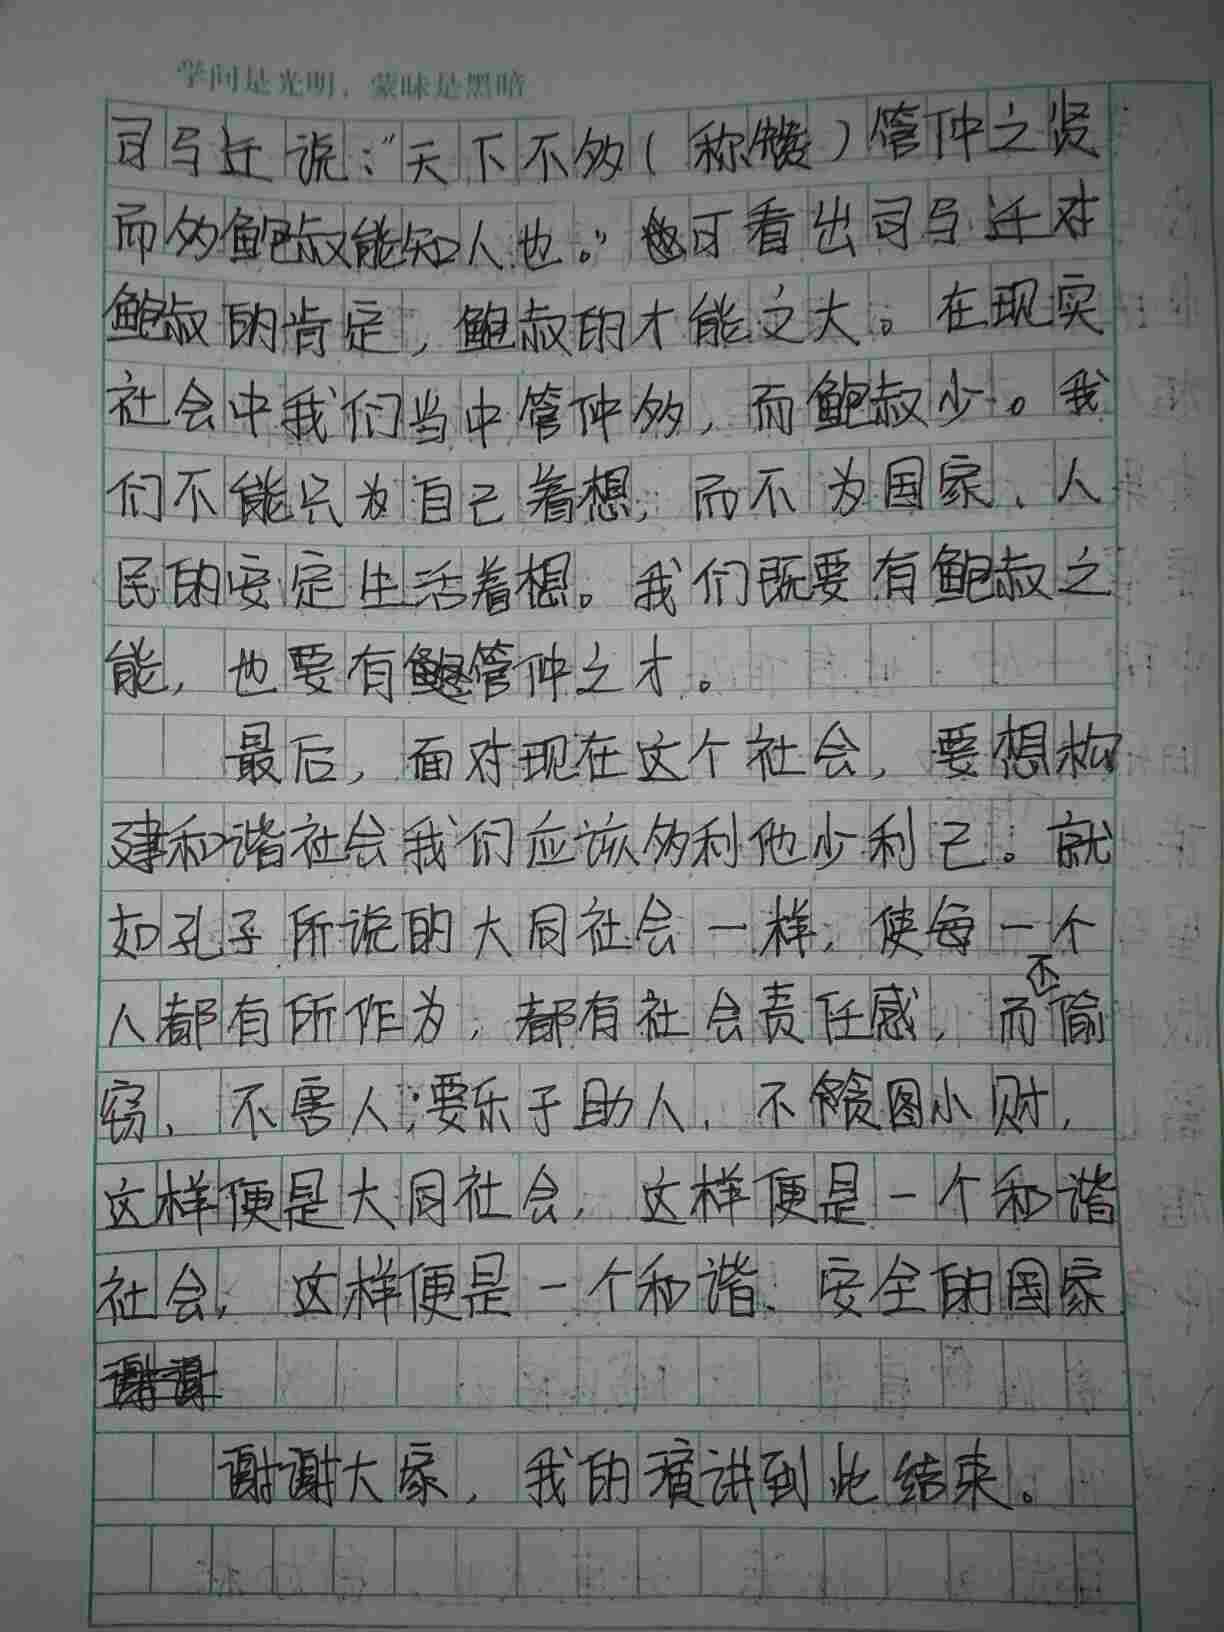 学问是光明，蒙昧是黑暗
司马迁说："天下不多（称赞）管仲之贤
而多鲍叔能知人也。"可看出司马迁对
鲍叔的肯定，鲍叔的才能之大。在现实
社会中我们当中管仲多，而鲍叔少。我
们不能只为自己着想，而不为国家、人
民的安定生活着想。我们既要有鲍叔之
能，也要有管仲之才。
最后，面对现在这个社会，要想构
建和谐社会我们应该多利他少利己。就
如孔子所说的大同社会一样，使每一个
人都有所作为，都有社会责任感，而不偷
窃、不害人；要乐于助人，不贪图小财，
这样便是大同社会，这样便是一个和谐
社会，这样便是一个和谐、安全的国家
谢谢大家，我的演讲到此结束。